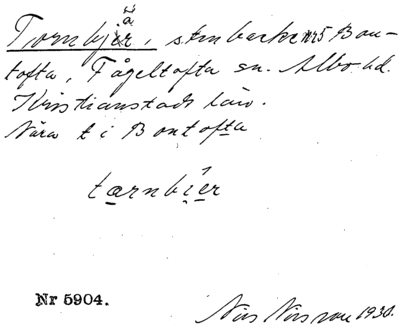 Tornbjär, stenbacke nr 5 Bon-
tofta, Fågeltofta sn. Albo hd.
Kristianstads län.
Nära t i Bontofta
tærnbíer
Nr 5904.
Nils Nilsson 1930.